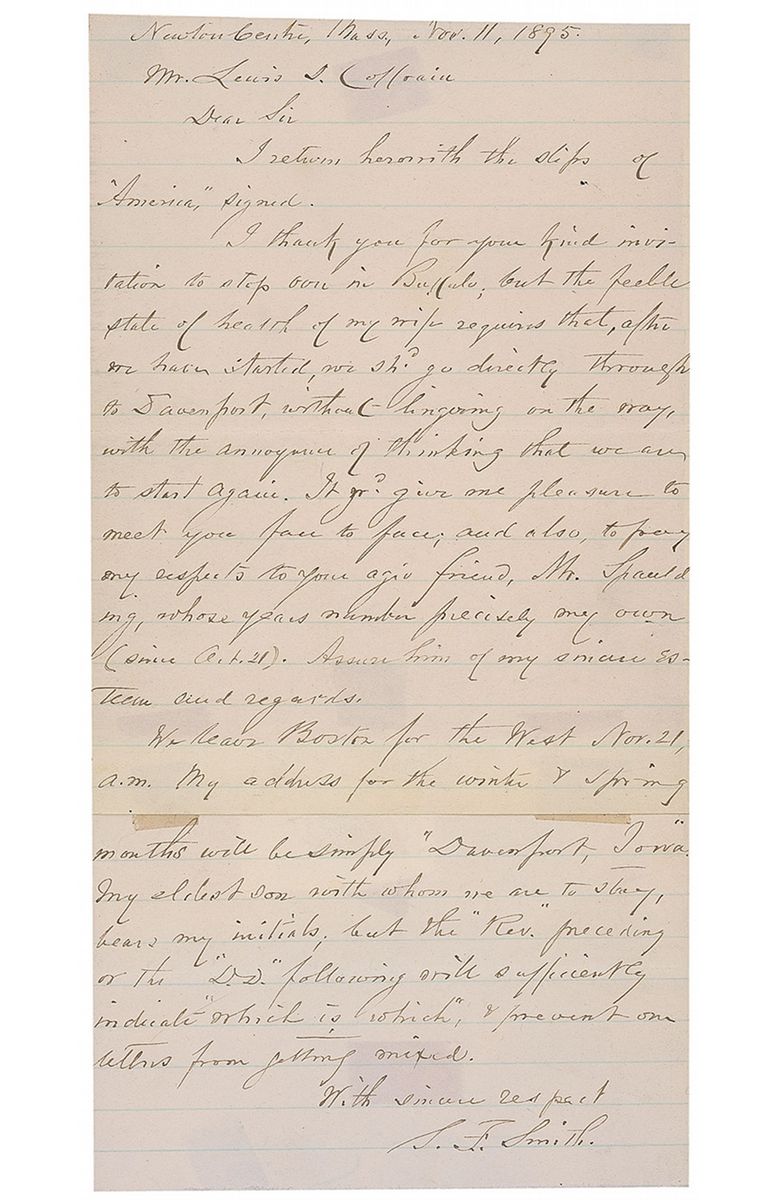 Newton Centre, Mass., Nov. 11, 1895.
Mr. Lewis
Dear Sir
I return herewith the slips of
"America," signed.
I thank you for your kind invi-
tation to stop over in Buffalo; but the feeble
state of health of my wife requires that, after
we have started, we shd. go directly through
to Davenport, without lingering on the way,
with the annoyance of thinking that we are
to start again. It wd. give me pleasure to
meet you face to face; and also, to pay
my respects to your friend, Mr. Spauld
ing, whose years number precisely my own
(since Oct. 21). Assure him of my sincere es-
teem and regards.
We leave Boston for the West Nov. 21,
a.m. My address for the winter & spring
months will be simply "Davenport, Iowa."
My eldest son with whom we are to stay,
bears my initials; but the "Rev." preceding
or the "D.D." following will sufficiently
indicate "which is which", & prevent our
letters from getting mixed.
With sincere respect
S. F. Smith.